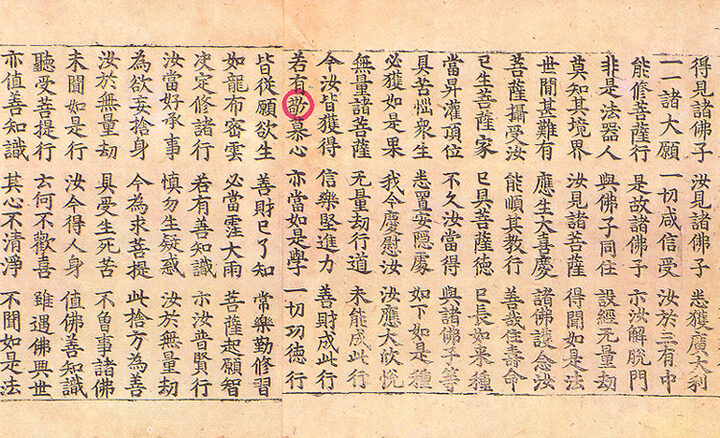 得見諸佛子 汝見諸佛子 悉獲廣大利
一一諸大願 一切咸信受 汝於三有中
能修菩薩行 是故諸佛子 亦汝解脫門
非是法器人 與佛子同住 設經无量劫
莫知其境界 汝見諸菩薩 得聞如是法
世間甚難有 應生大喜慶 諸佛護念汝
菩薩攝受汝 能順其教行 善哉住壽命
已生菩薩家 已具菩薩德 已長如来種
當昇灌頂位 不久汝當得 與諸佛子等
具苦惱衆生 悉置安隱處 如下如是種
必獲如是果 我今慶慰汝 汝應大欣悅
無量諸菩薩 无量劫行道 未能成此行
今汝皆獲得 信樂堅進力 善財成此行
若有敬慕心 亦當如是學 一切功德行
皆從願欲生 善財已了知 常樂勤修習
如龍布密雲 必當霔大雨 菩薩起願智
决定修諸行 若有善知識 亦汝普賢行
汝當好承事 慎勿生疑惑 汝於無量劫
為欲妄捨身 今為求菩提 此捨方為善
汝於無量劫 具受生死苦 不曾事諸佛
未聞如是行 汝今得人身 值佛善知識
聽受菩提行 云何不歡喜 雖遇佛興世
亦值善知識 其心不清淨 不聞如是法